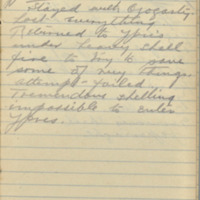 Stayed with Crogarty.
Lost everything
Returned to Ypres
under heavy shell
fire to try to save
some of my things.
attempt failed.
Tremendous shelling
impossible to enter
Ypres.